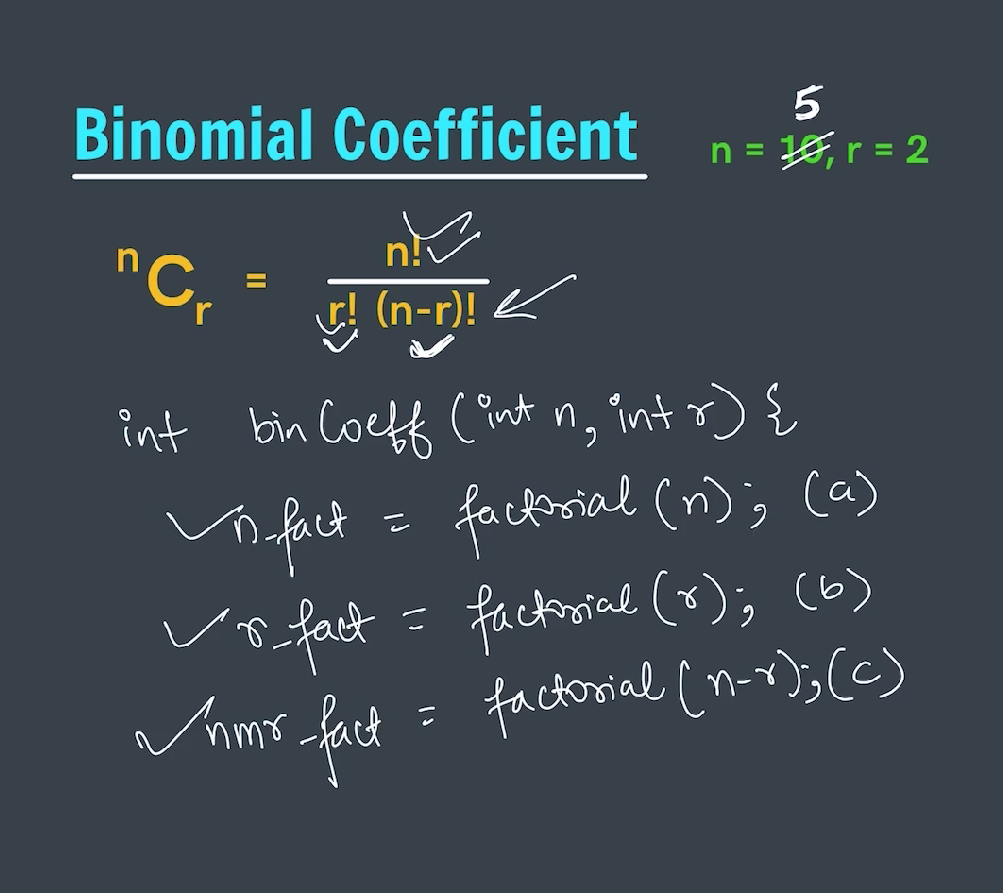 Binomial Coefficient
5
n = 10, r = 2
nCr = n! / r! (n-r)!
int binCoeff (int n, int r) {
n_fact = factorial (n); (a)
r_fact = factorial (r); (b)
nmr_fact = factorial (n-r); (c)